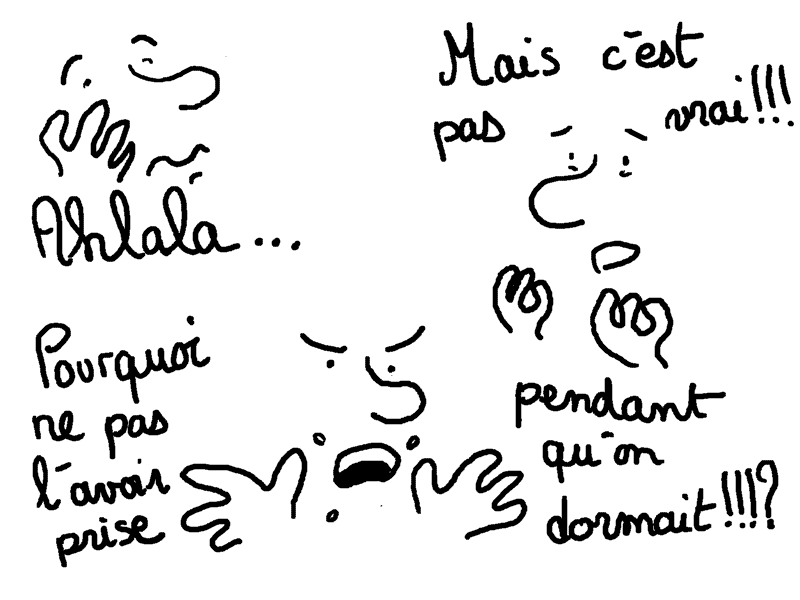 Ahlala...
Mais c'est
pas vrai!!!
Pourquoi
ne pas
l'avoir
prise
pendant
qu'on
dormait!!!?